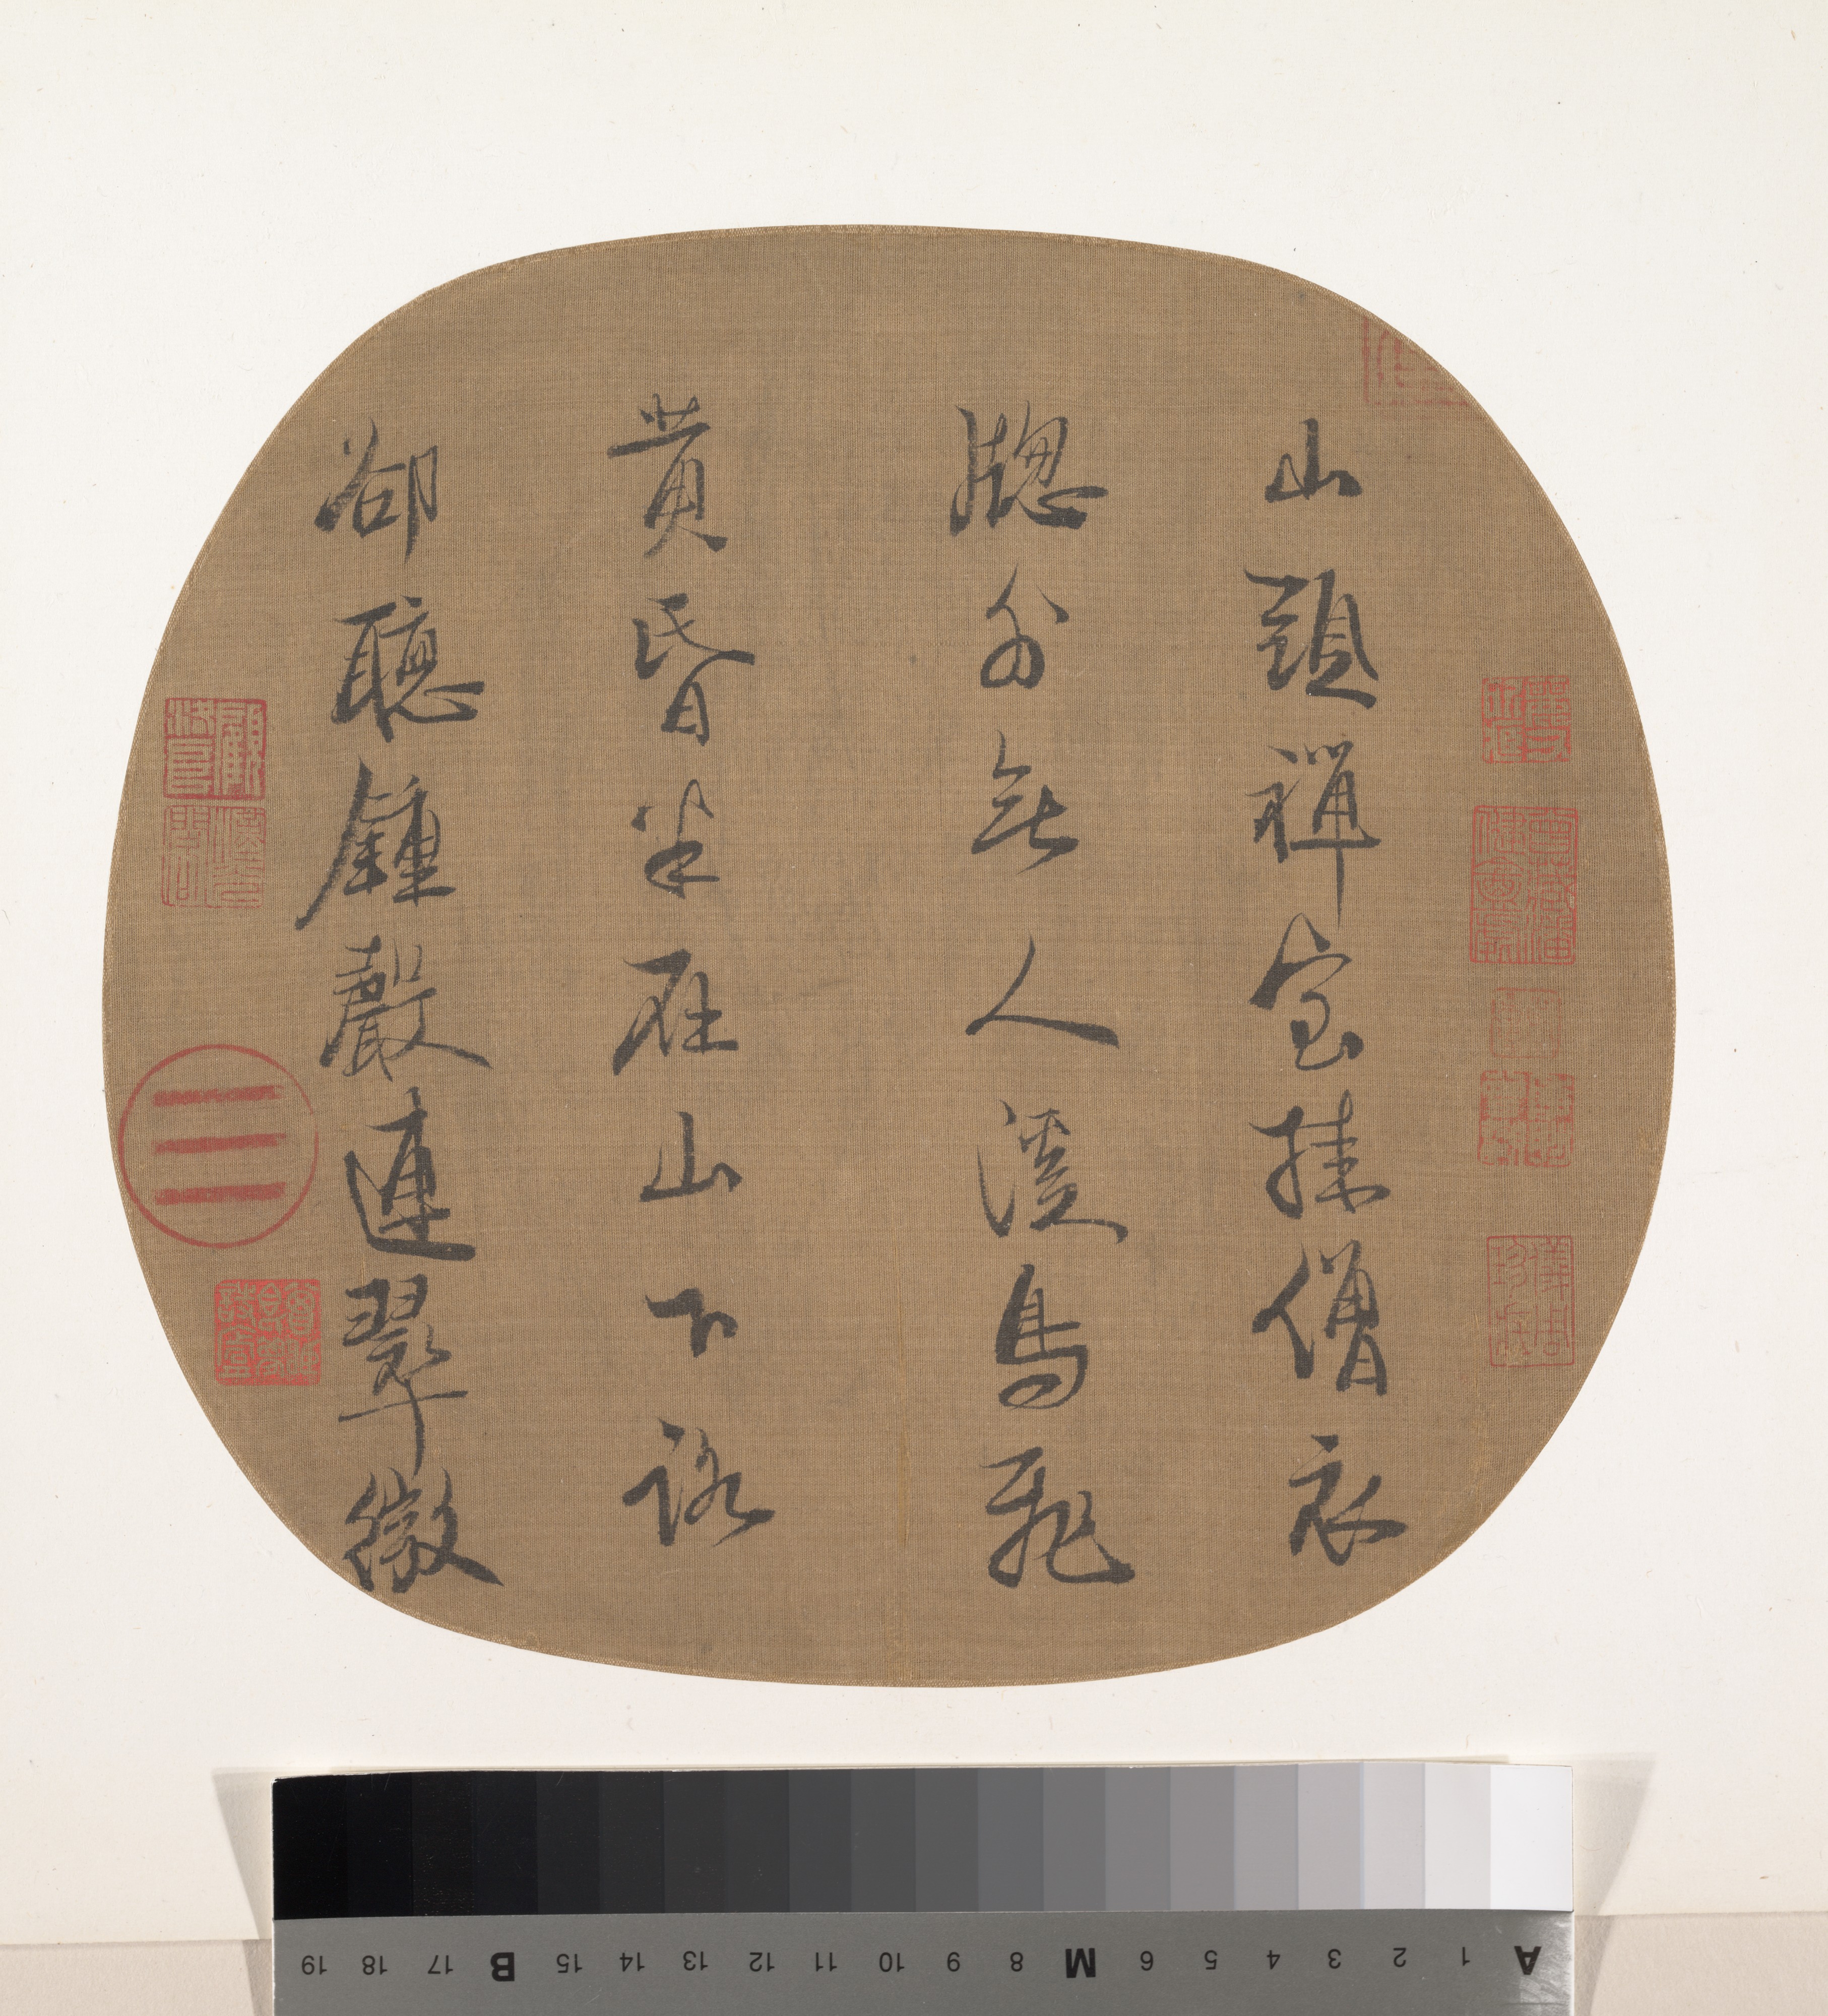 山頭禪室挂僧衣
牕外無人溪鳥飛
黄昏半在山下路
却聽鍾聲連翠微
A 1 2 3 4 5 6 M 8 9 10 11 12 13 14 15 B 17 18 19